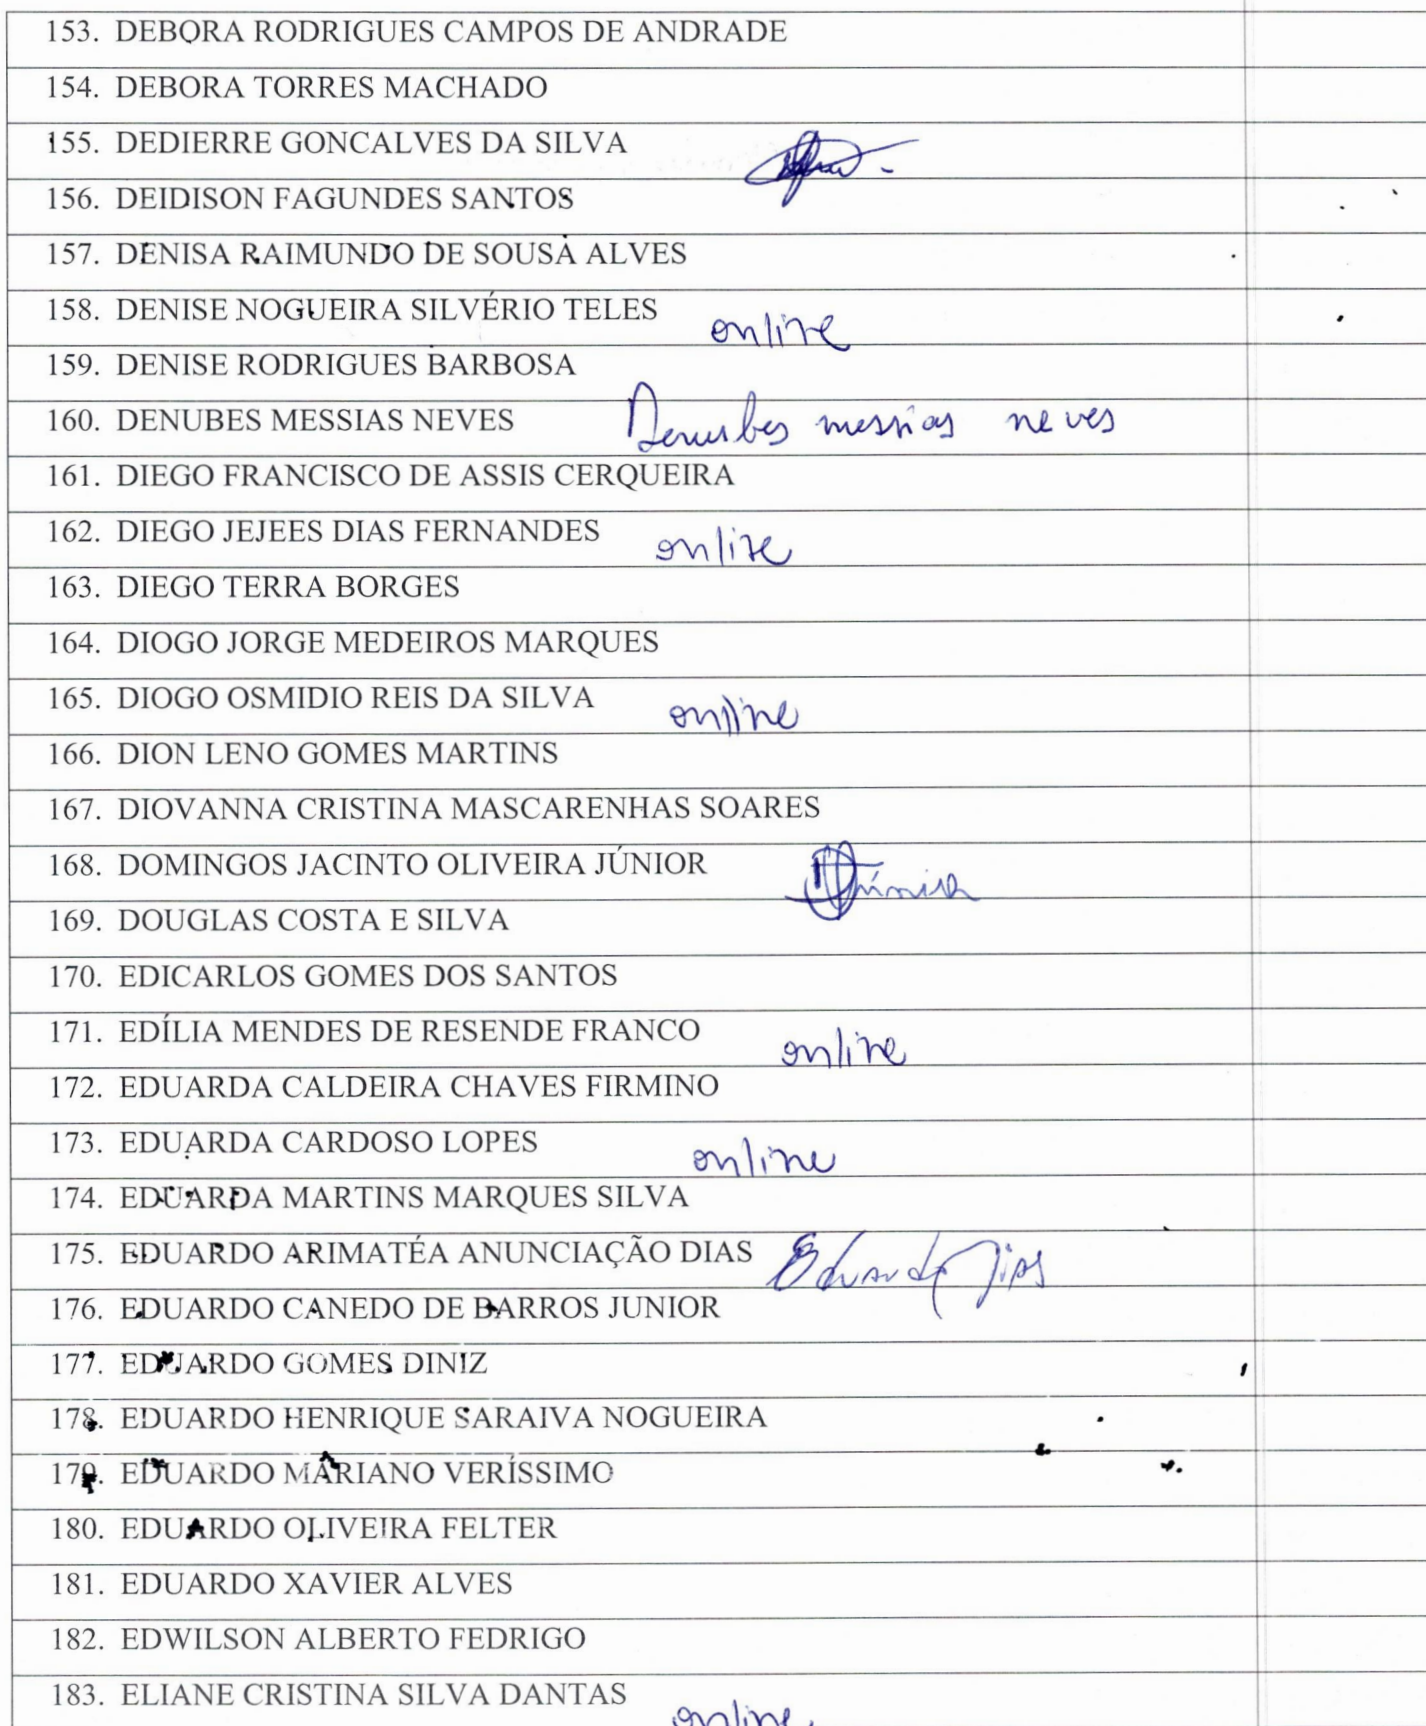 153. DEBORA RODRIGUES CAMPOS DE ANDRADE
154. DEBORA TORRES MACHADO
155. DEDIERRE GONCALVES DA SILVA
156. DEIDISON FAGUNDES SANTOS
157. DENISA RAIMUNDO DE SOUSA ALVES
158. DENISE NOGUEIRA SILVÉRIO TELES online
159. DENISE RODRIGUES BARBOSA
160. DENUBES MESSIAS NEVES Denubes messias neves
161. DIEGO FRANCISCO DE ASSIS CERQUEIRA
162. DIEGO JEJEES DIAS FERNANDES online
163. DIEGO TERRA BORGES
164. DIOGO JORGE MEDEIROS MARQUES
165. DIOGO OSMIDIO REIS DA SILVA online
166. DION LENO GOMES MARTINS
167. DIOVANNA CRISTINA MASCARENHAS SOARES
168. DOMINGOS JACINTO OLIVEIRA JÚNIOR
169. DOUGLAS COSTA E SILVA
170. EDICARLOS GOMES DOS SANTOS
171. EDÍLIA MENDES DE RESENDE FRANCO online
172. EDUARDA CALDEIRA CHAVES FIRMINO
173. EDUARDA CARDOSO LOPES online
174. EDUARDA MARTINS MARQUES SILVA
175. EDUARDO ARIMATÉA ANUNCIAÇÃO DIAS Eduardo Dias
176. EDUARDO CANEDO DE BARROS JUNIOR
177. EDUARDO GOMES DINIZ
178. EDUARDO HENRIQUE SARAIVA NOGUEIRA
179. EDUARDO MARIANO VERÍSSIMO
180. EDUARDO OLIVEIRA FELTER
181. EDUARDO XAVIER ALVES
182. EDWILSON ALBERTO FEDRIGO
183. ELIANE CRISTINA SILVA DANTAS online